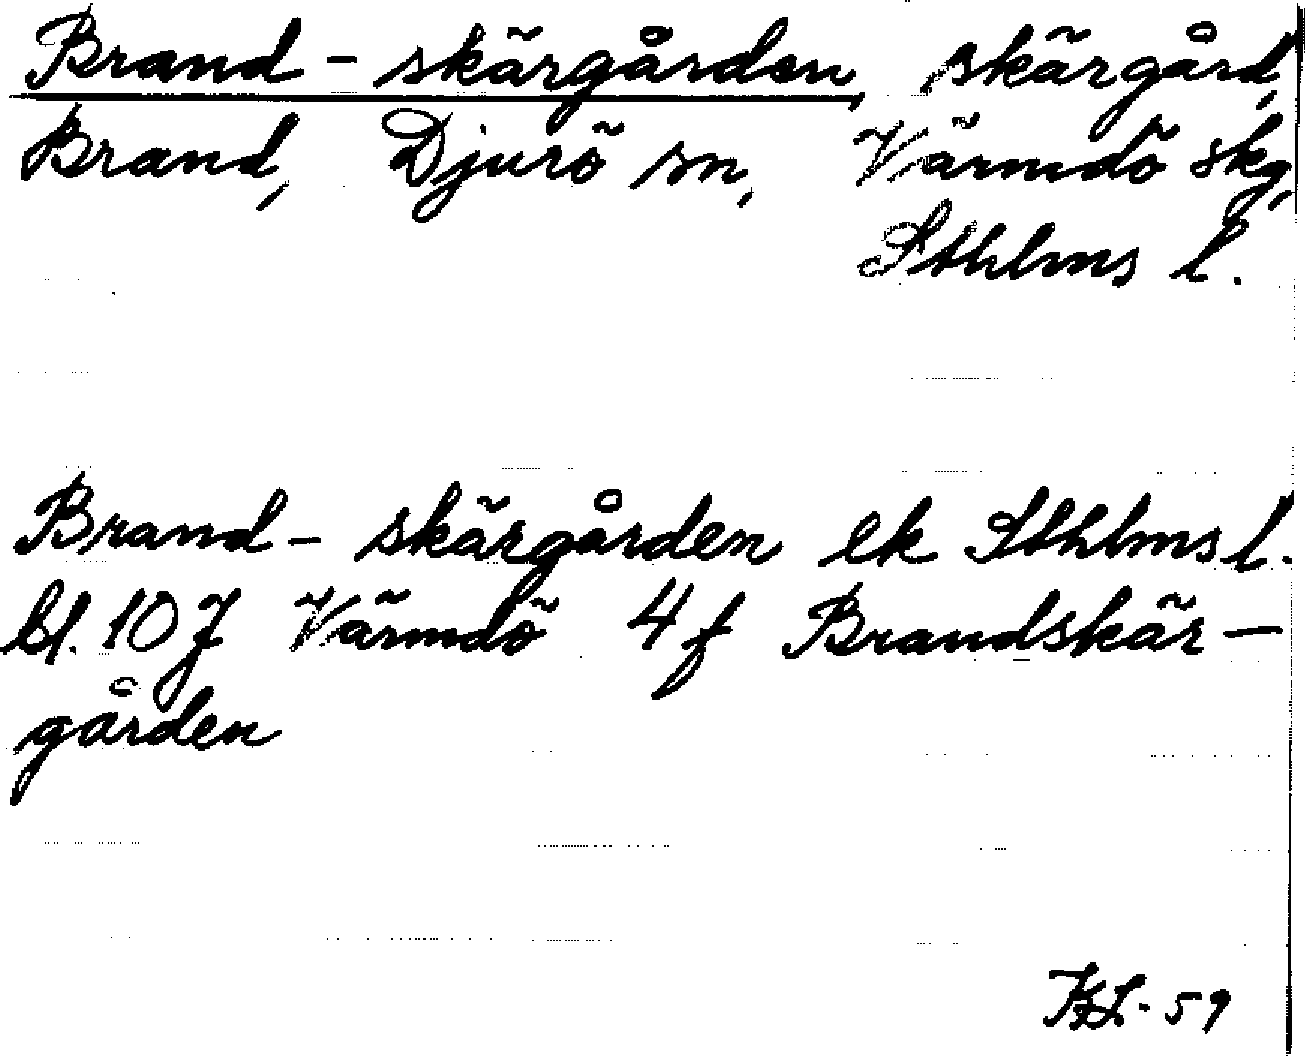 Brand-skärgården, skärgård,
Brand, Djurö sn, Värmdö skg,
Sthlms l.
Brand-skärgården ek Sthlms l.
bl. 107 Värmdö 4f Brandskär-
gården
KL-59